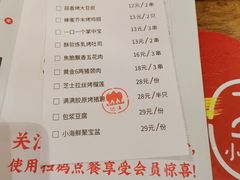 蒜香烤大豆皮 12元/2串
蜂蜜芥末烤鸡翅 12元/2串
一口一个掌中宝 13元/2串
酥软炼乳烤吐司 13元/只
焦脆飘香五花肉 16元/2串
黄金6两猪颈肉 18元/3串
芝士拉丝烤榴莲 28元/份
满满胶原烤猪蹄 28元/半只
包浆豆腐 29元/份
小海鲜聚宝盆 29元/份
关注
使用扫码点餐享受会员惊喜!
小